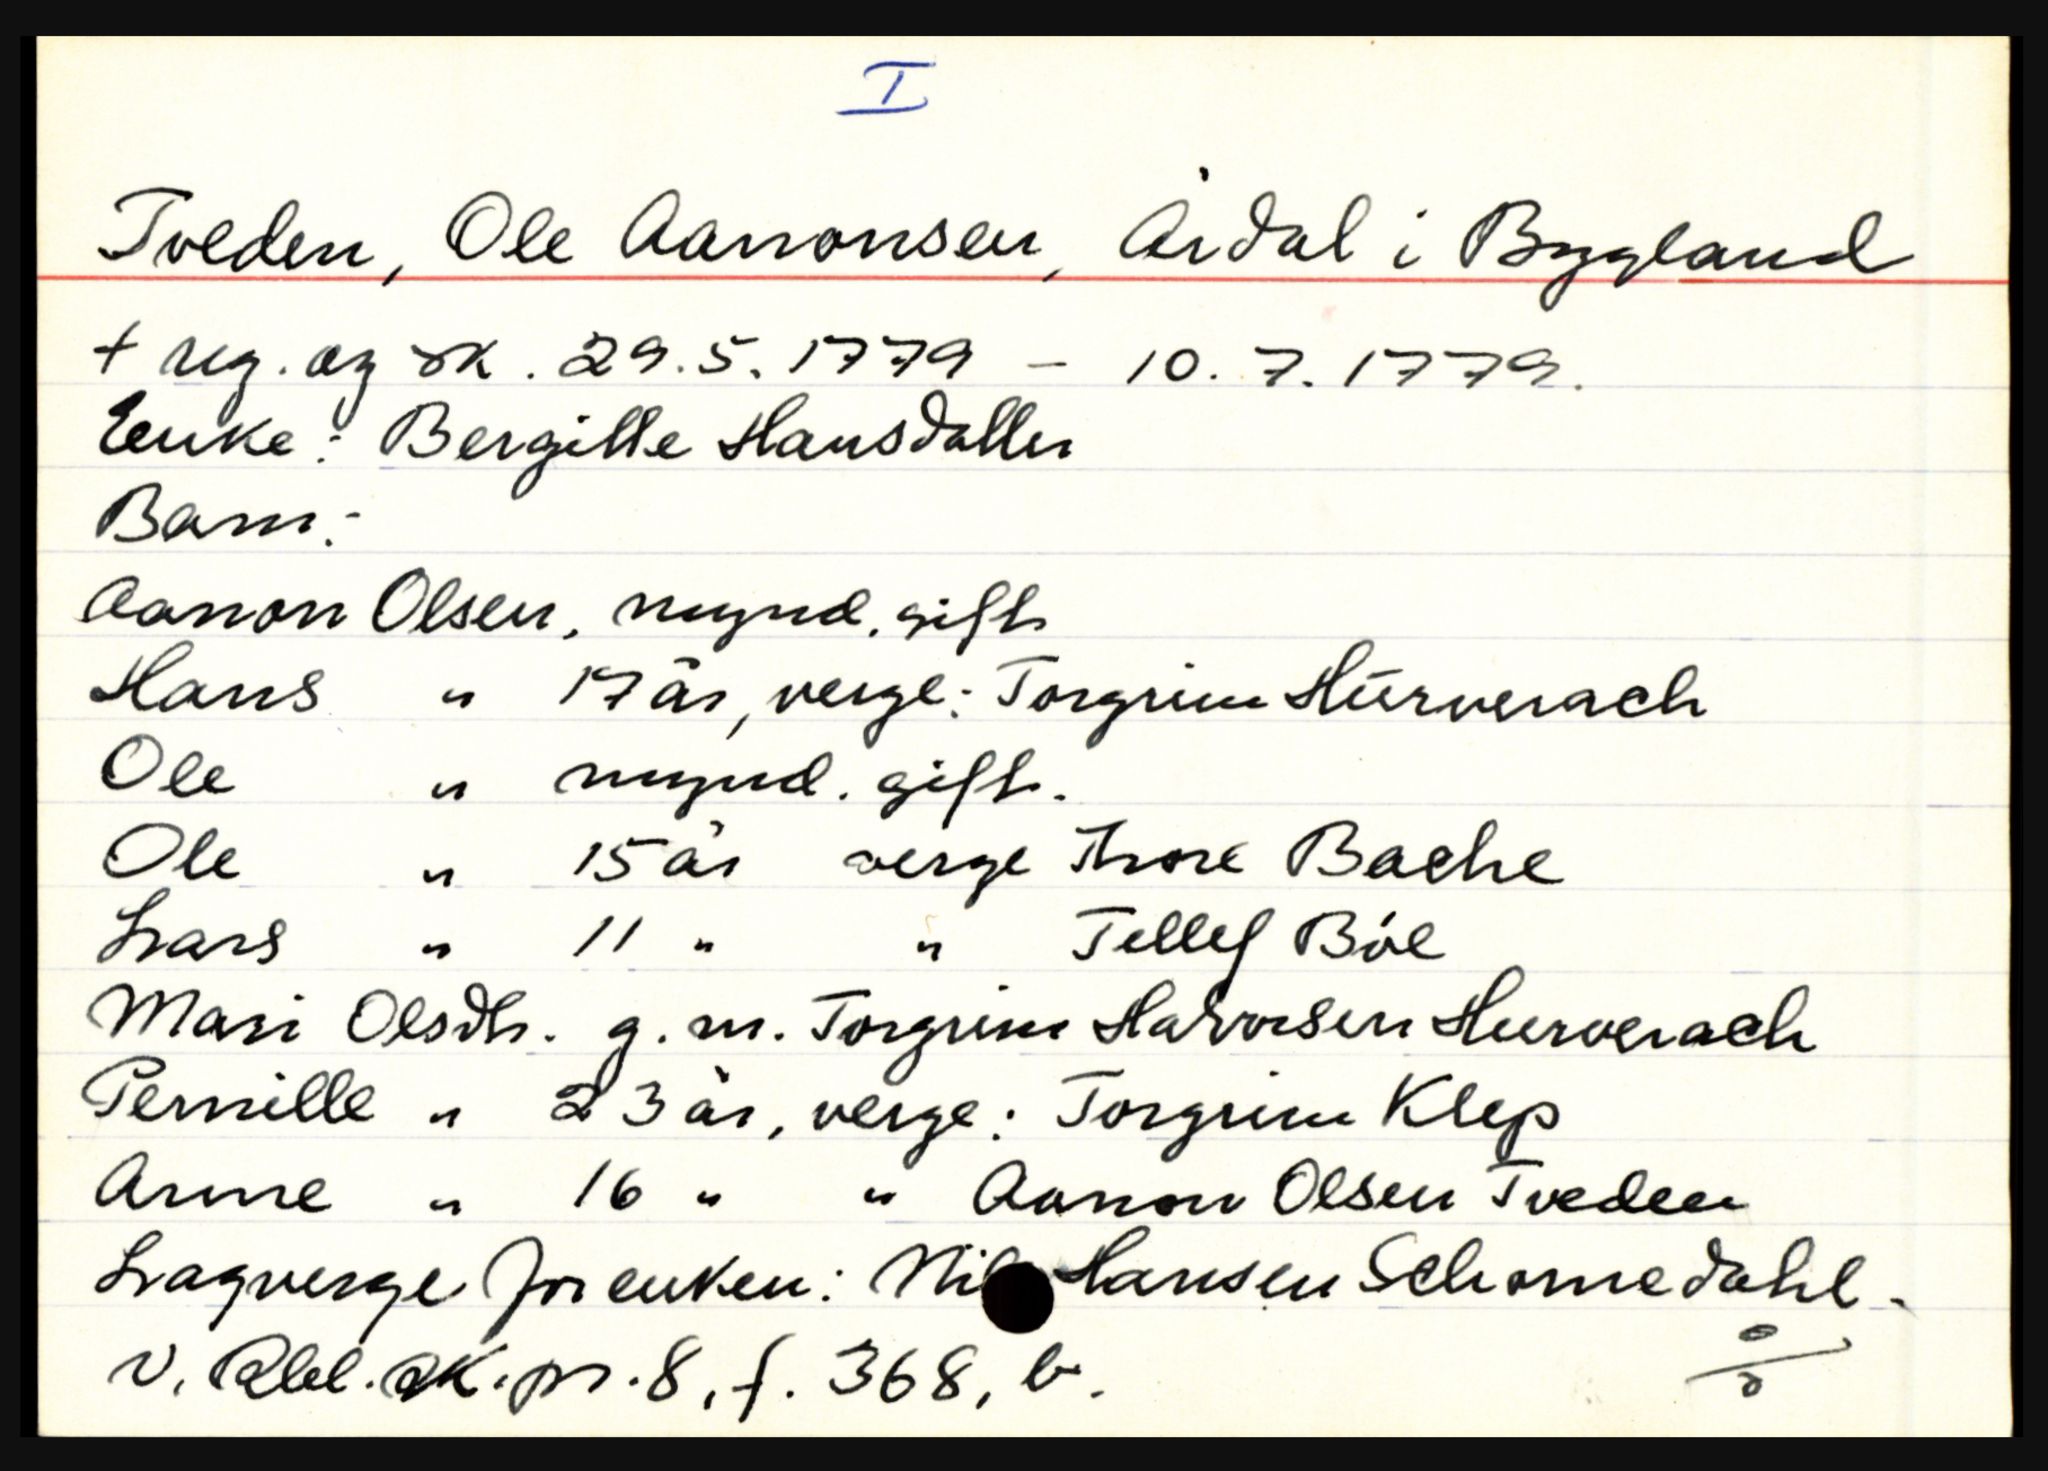 I
Tveden, Ole Aanonsen, Årdal i Bygland
+ reg. og sk. 29.5.1779 – 10.7.1779.
Enke: Bergitte Hansdatter
Barn:
Aanon Olsen, mynd. gift
Hans " 17 år, verge: Torgrim Hürverach
Ole " mynd. gift.
Ole " 15 år verge Thore Bache
Lars " 11 " " Tellef Böe
Mari Olsdtr. g. m. Torgrim Halvorsen Hurverach
Pernille " 23 år, verge: Torgrim Klep
Anne " 16 " " Aanon Olsen Tveden
Lagverge for enken: Hansen Schomedahl.
V. Rbl. sk. pr. 8, f. 368, b.